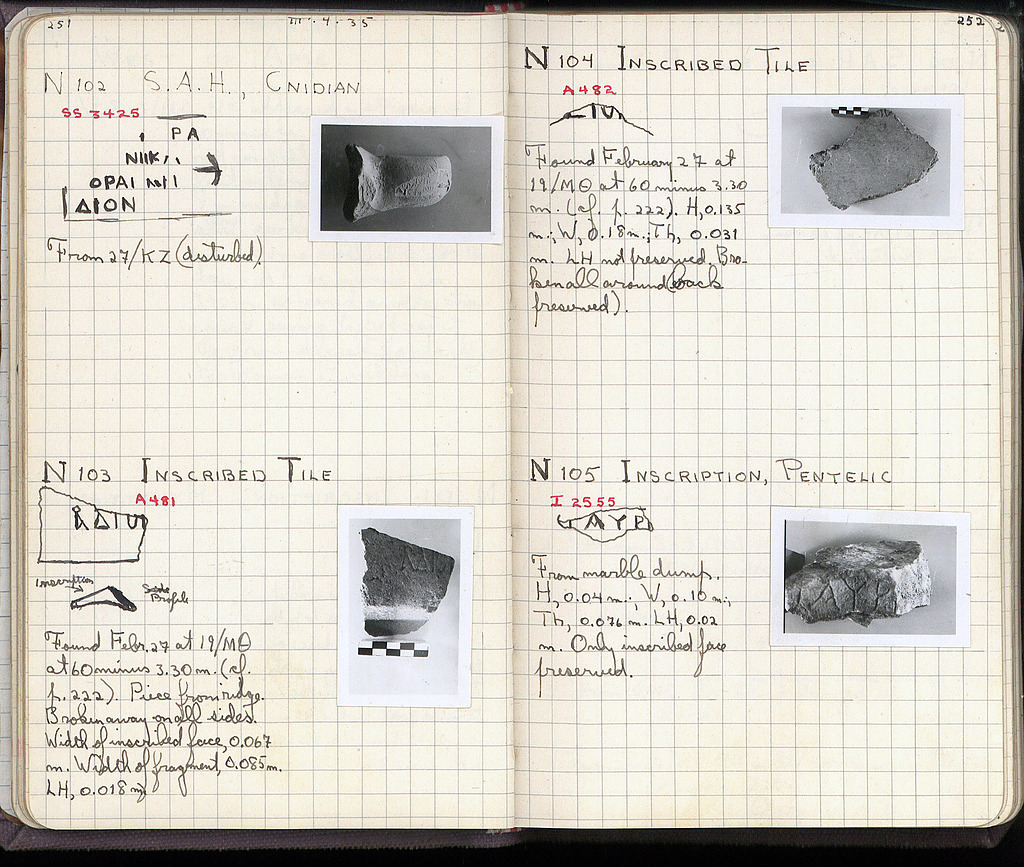 251
III·4·35
N 102 S.A.H., CNIDIAN
SS 3425
ΡΑ
ΔΙΟΝ
From 27/ΚΖ (disturbed).
N 103 INSCRIBED TILE
A 481
Inscription
Side
Profile
Found Febr. 27 at 19/ΜΘ
at 60 minus 3.30 m. (cf.
p. 222). Piece from ridge.
Broken away on all sides.
Width of inscribed face, 0.067
m. Width of fragment, 0.085 m.
LH, 0.018 m.
252
N 104 INSCRIBED TILE
A 482
Found February 27 at
19/ΜΘ at 60 minus 3.30
m. (cf. p. 222). H, 0.135
m.; W, 0.18 m.; Th, 0.031
m. LH not preserved. Bro-
ken all around (back
preserved).
N 105 INSCRIPTION, PENTELIC
I 2555
ΑΥΡ
From marble dump.
H, 0.04 m.; W, 0.10 m.;
Th, 0.076 m. LH, 0.02
m. Only inscribed face
preserved.